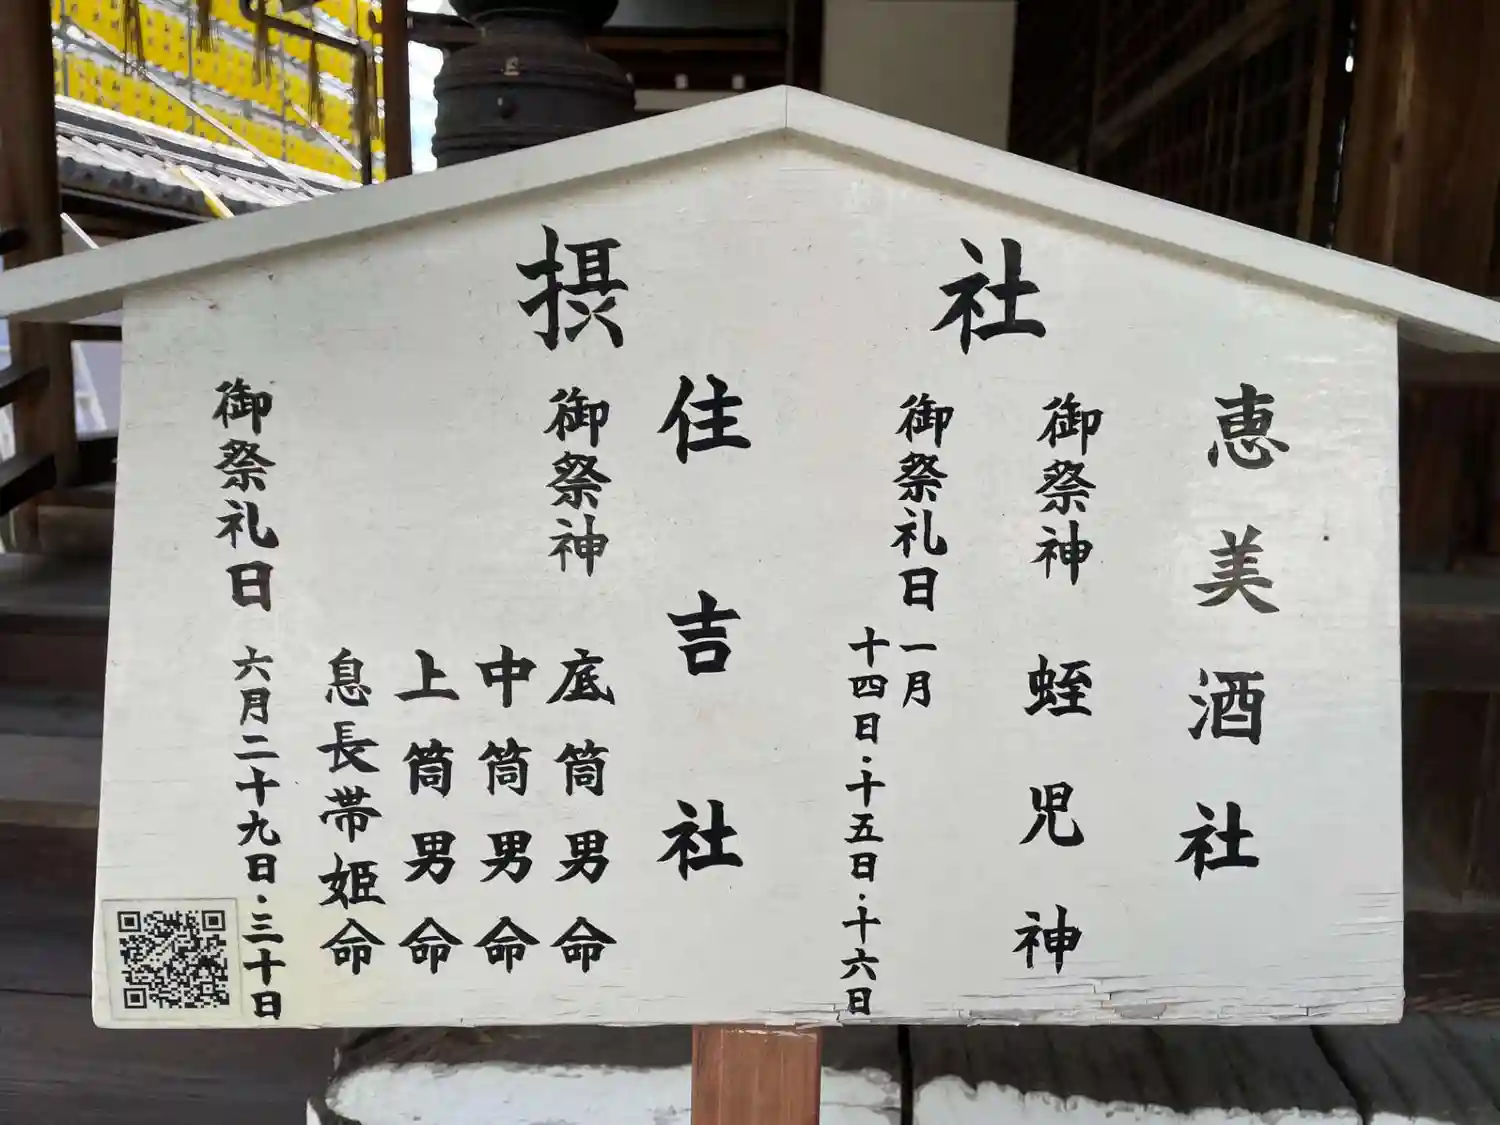 摂社
恵美酒社
御祭神 蛭児神
御祭礼日 一月
十四日・十五日・十六日
住吉社
御祭神 底筒男命
中筒男命
上筒男命
息長帯姫命
御祭礼日 六月二十九日・三十日